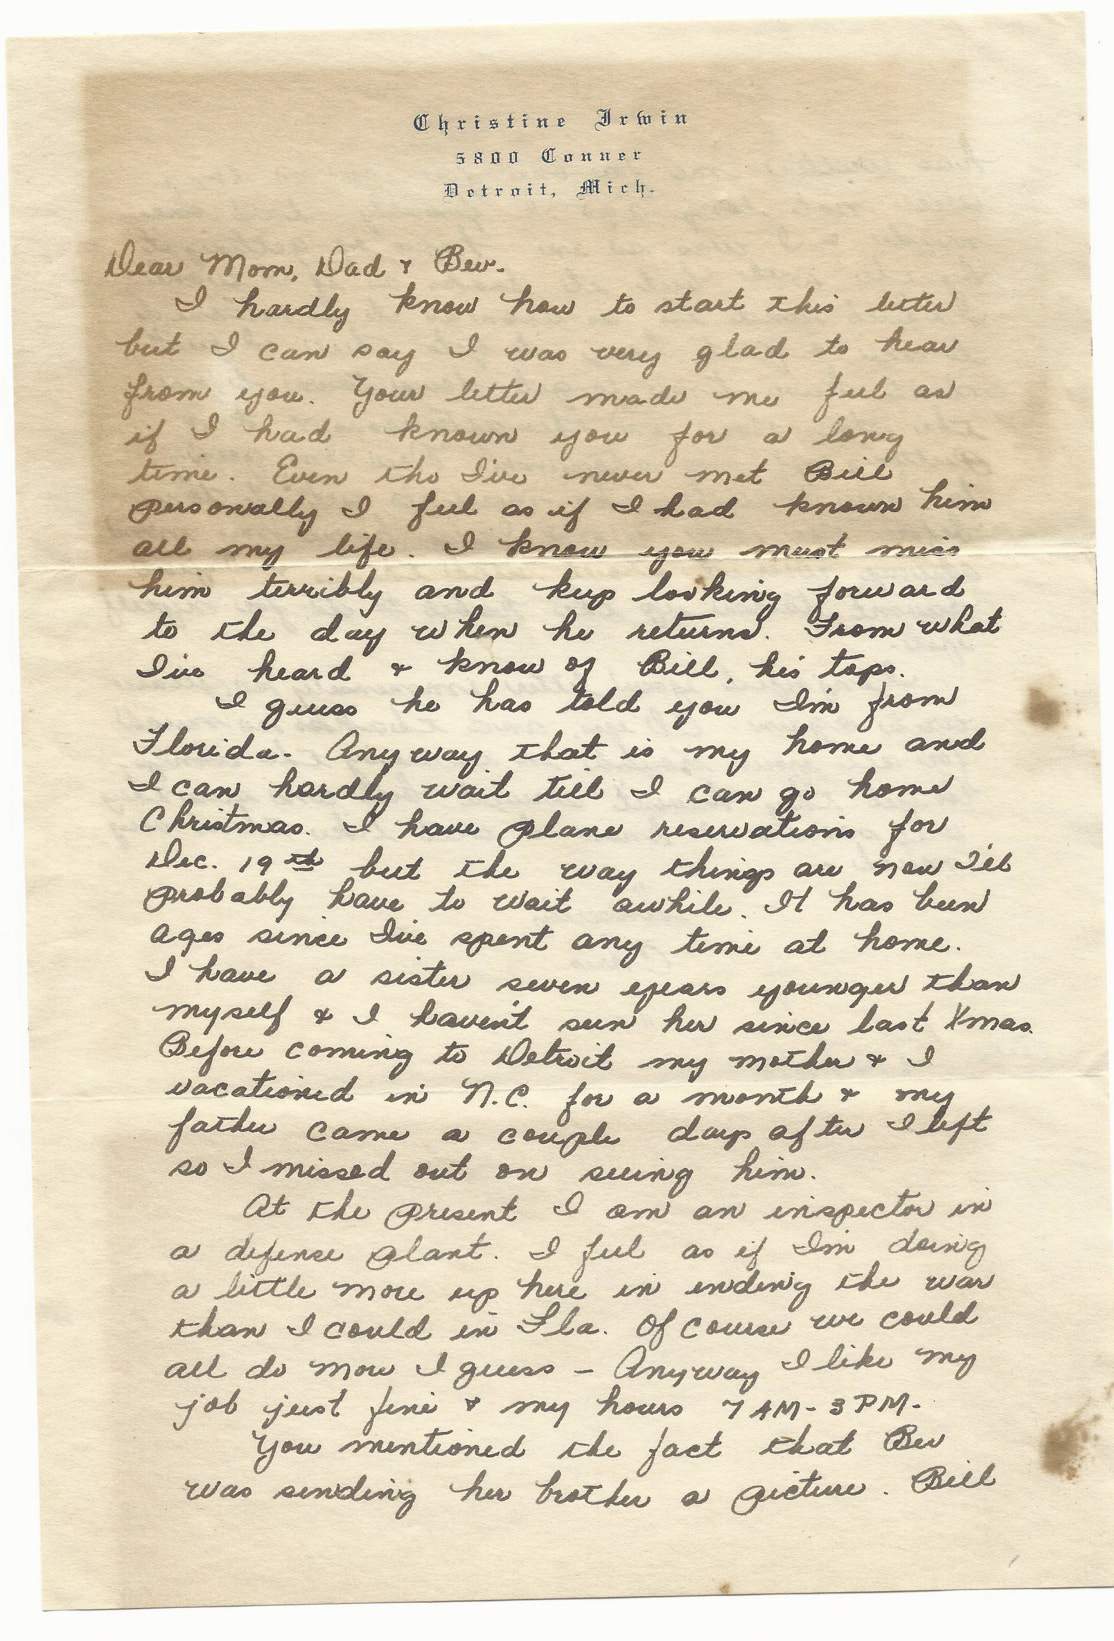 Christine Irwin
5800 Conner
Detroit, Mich.
Dear Mom, Dad & Bev.
I hardly know how to start this letter
but I can say I was very glad to hear
from you. Your letter made me feel as
if I had known you for a long
time. Even tho I've never met Bill
personally I feel as if I had known him
all my life. I know you must miss
him terribly and keep looking forward
to the day when he returns. From what
I've heard & know of Bill, his tops.
I guess he has told you I'm from
Florida. Anyway that is my home and
I can hardly wait till I can go home
Christmas. I have plane reservations for
Dec. 19th but the way things are now I'll
probably have to wait awhile. It has been
ages since I've spent any time at home.
I have a sister seven years younger than
myself & I haven't seen her since last Xmas.
Before coming to Detroit my mother & I
vacationed in N.C. for a month & my
father came a couple days after I left
so I missed out on seeing him.
At the present I am an inspector in
a defense plant. I feel as if I'm doing
a little more up here in ending the war
than I could in Fla. Of course we could
all do more I guess - Anyway I like my
job just fine & my hours 7 AM - 3 PM.
You mentioned the fact that Bev
was sending her brother a picture. Bill